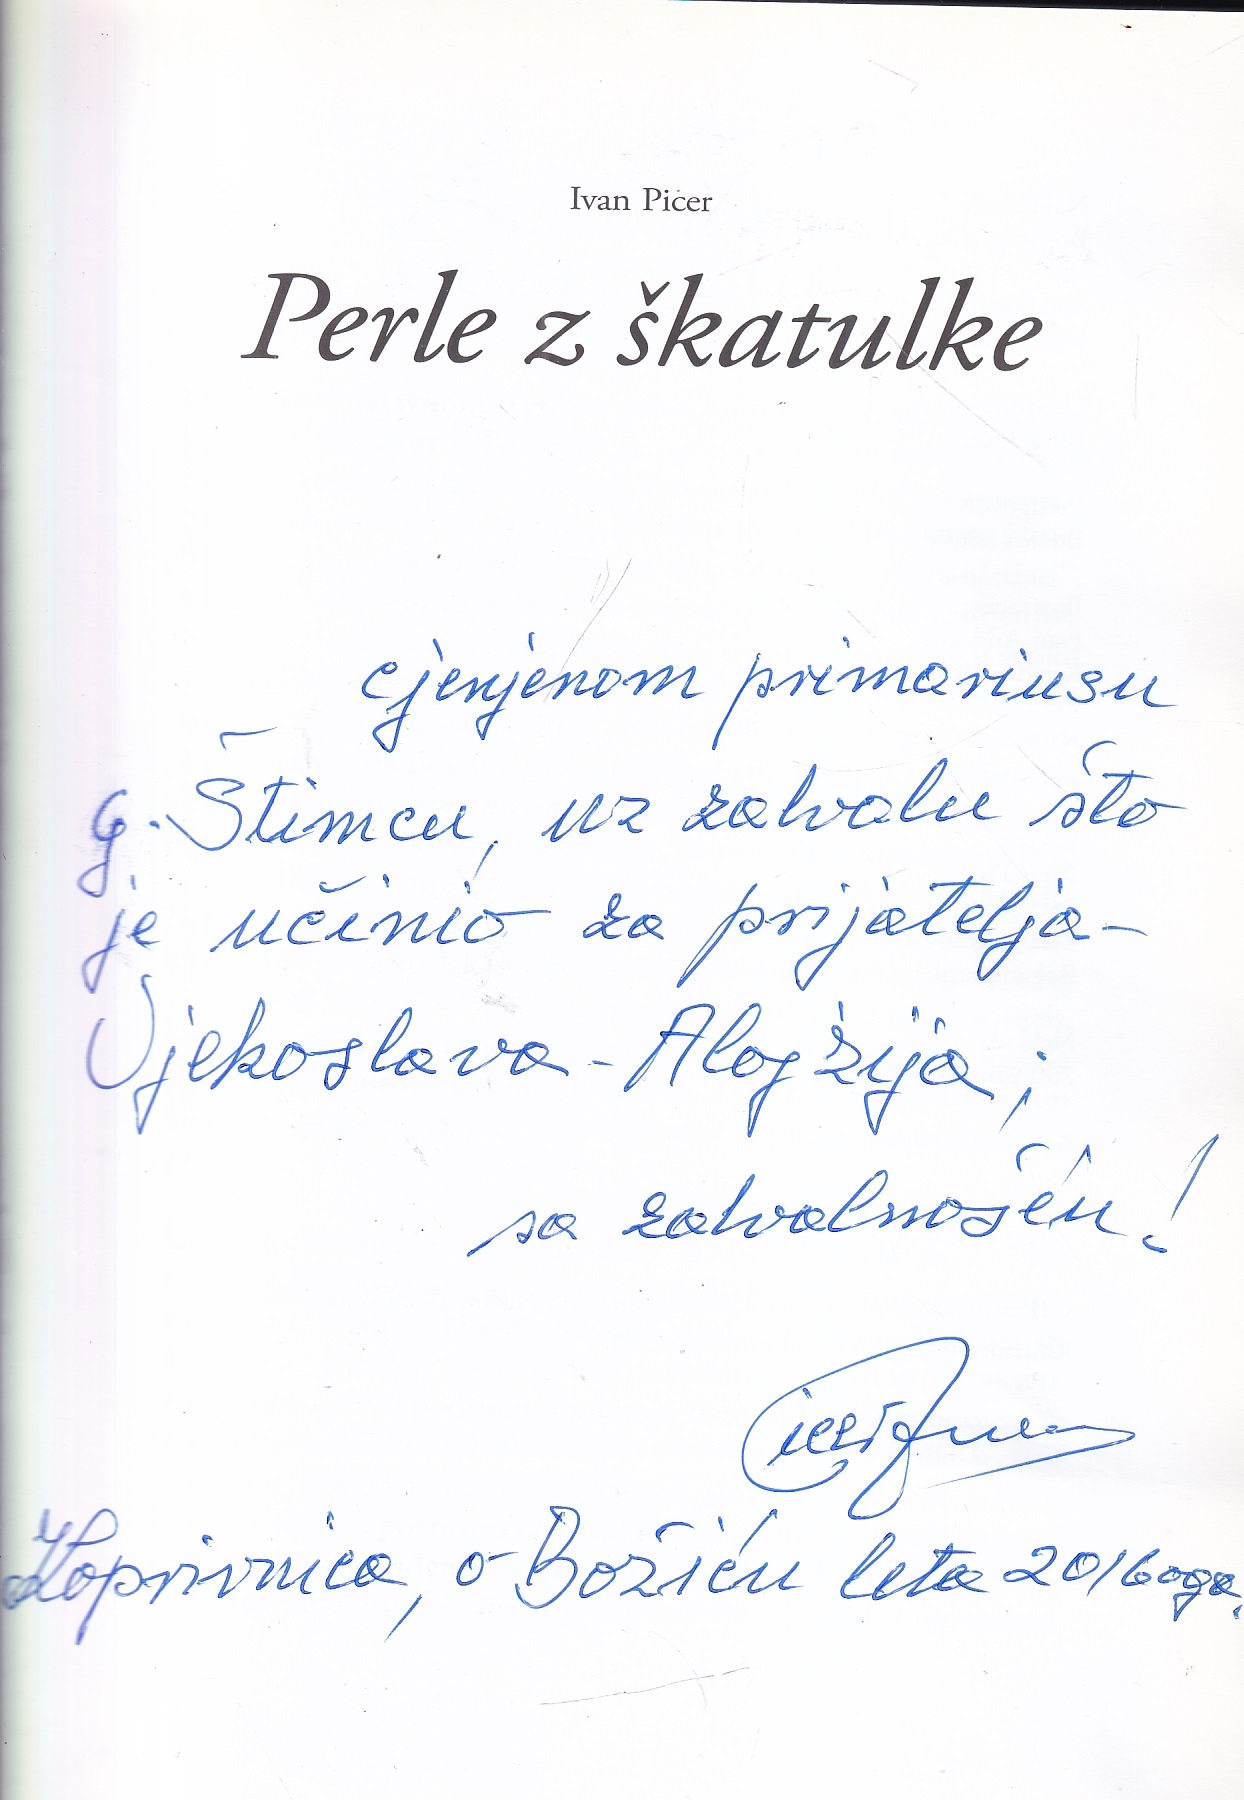 Ivan Picer
Perle z škatulke
cjenjenom primariusu
g. Štimcu, uz zahvalu što
je učinio za prijatelja-
Vjekoslava-Alojzija;
sa zahvalnošću!
Koprivnica, o Božiću leta 2016oga.